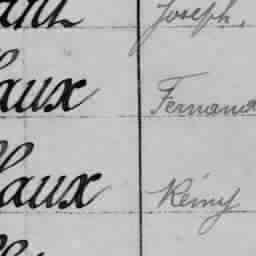 Joseph,
aux Fernand
aux Rémy